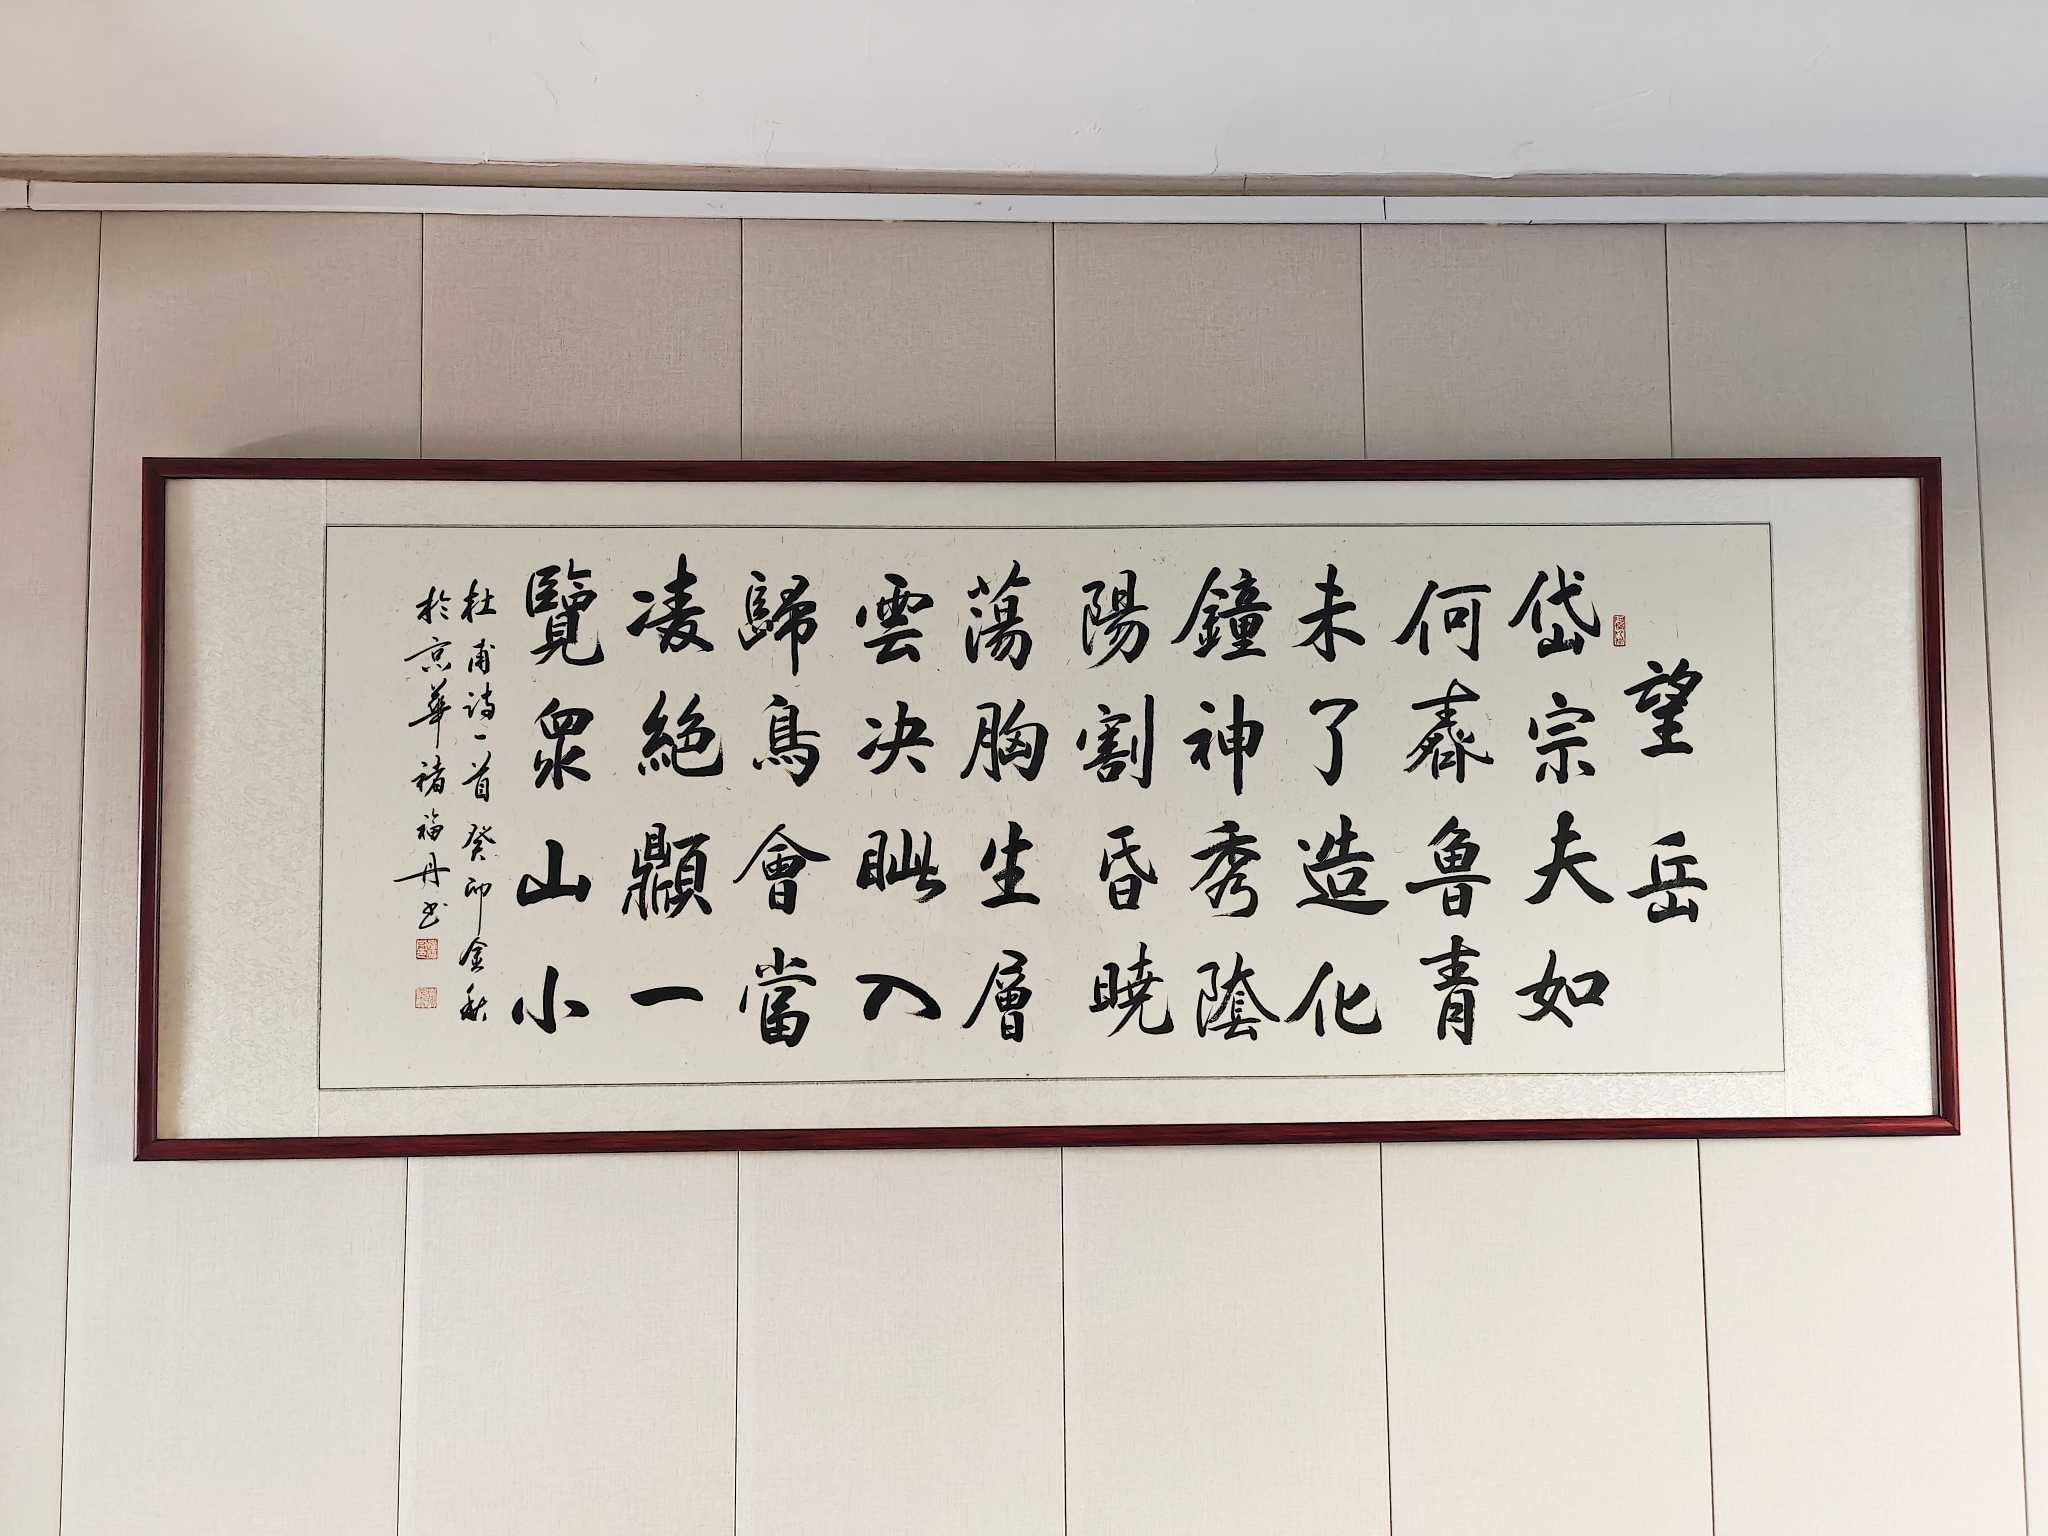 望岳
岱宗夫如
何齊魯青
未了造化
鐘神秀陰
陽割昏曉
蕩胸生層
雲决眦入
歸鳥會當
凌絕顛一
覽眾山小
杜甫詩一首 癸卯金秋
於京華褚福丹书